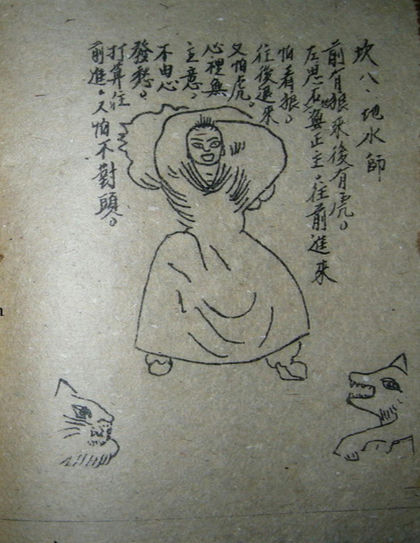 坎八、地水師
前有狼来後有虎。
左思右無正主。往前進來
怕着狼。
往後退来
又怕虎
心裡無
主意。
不由心
發愁。
打算往
前進。又怕不對頭。